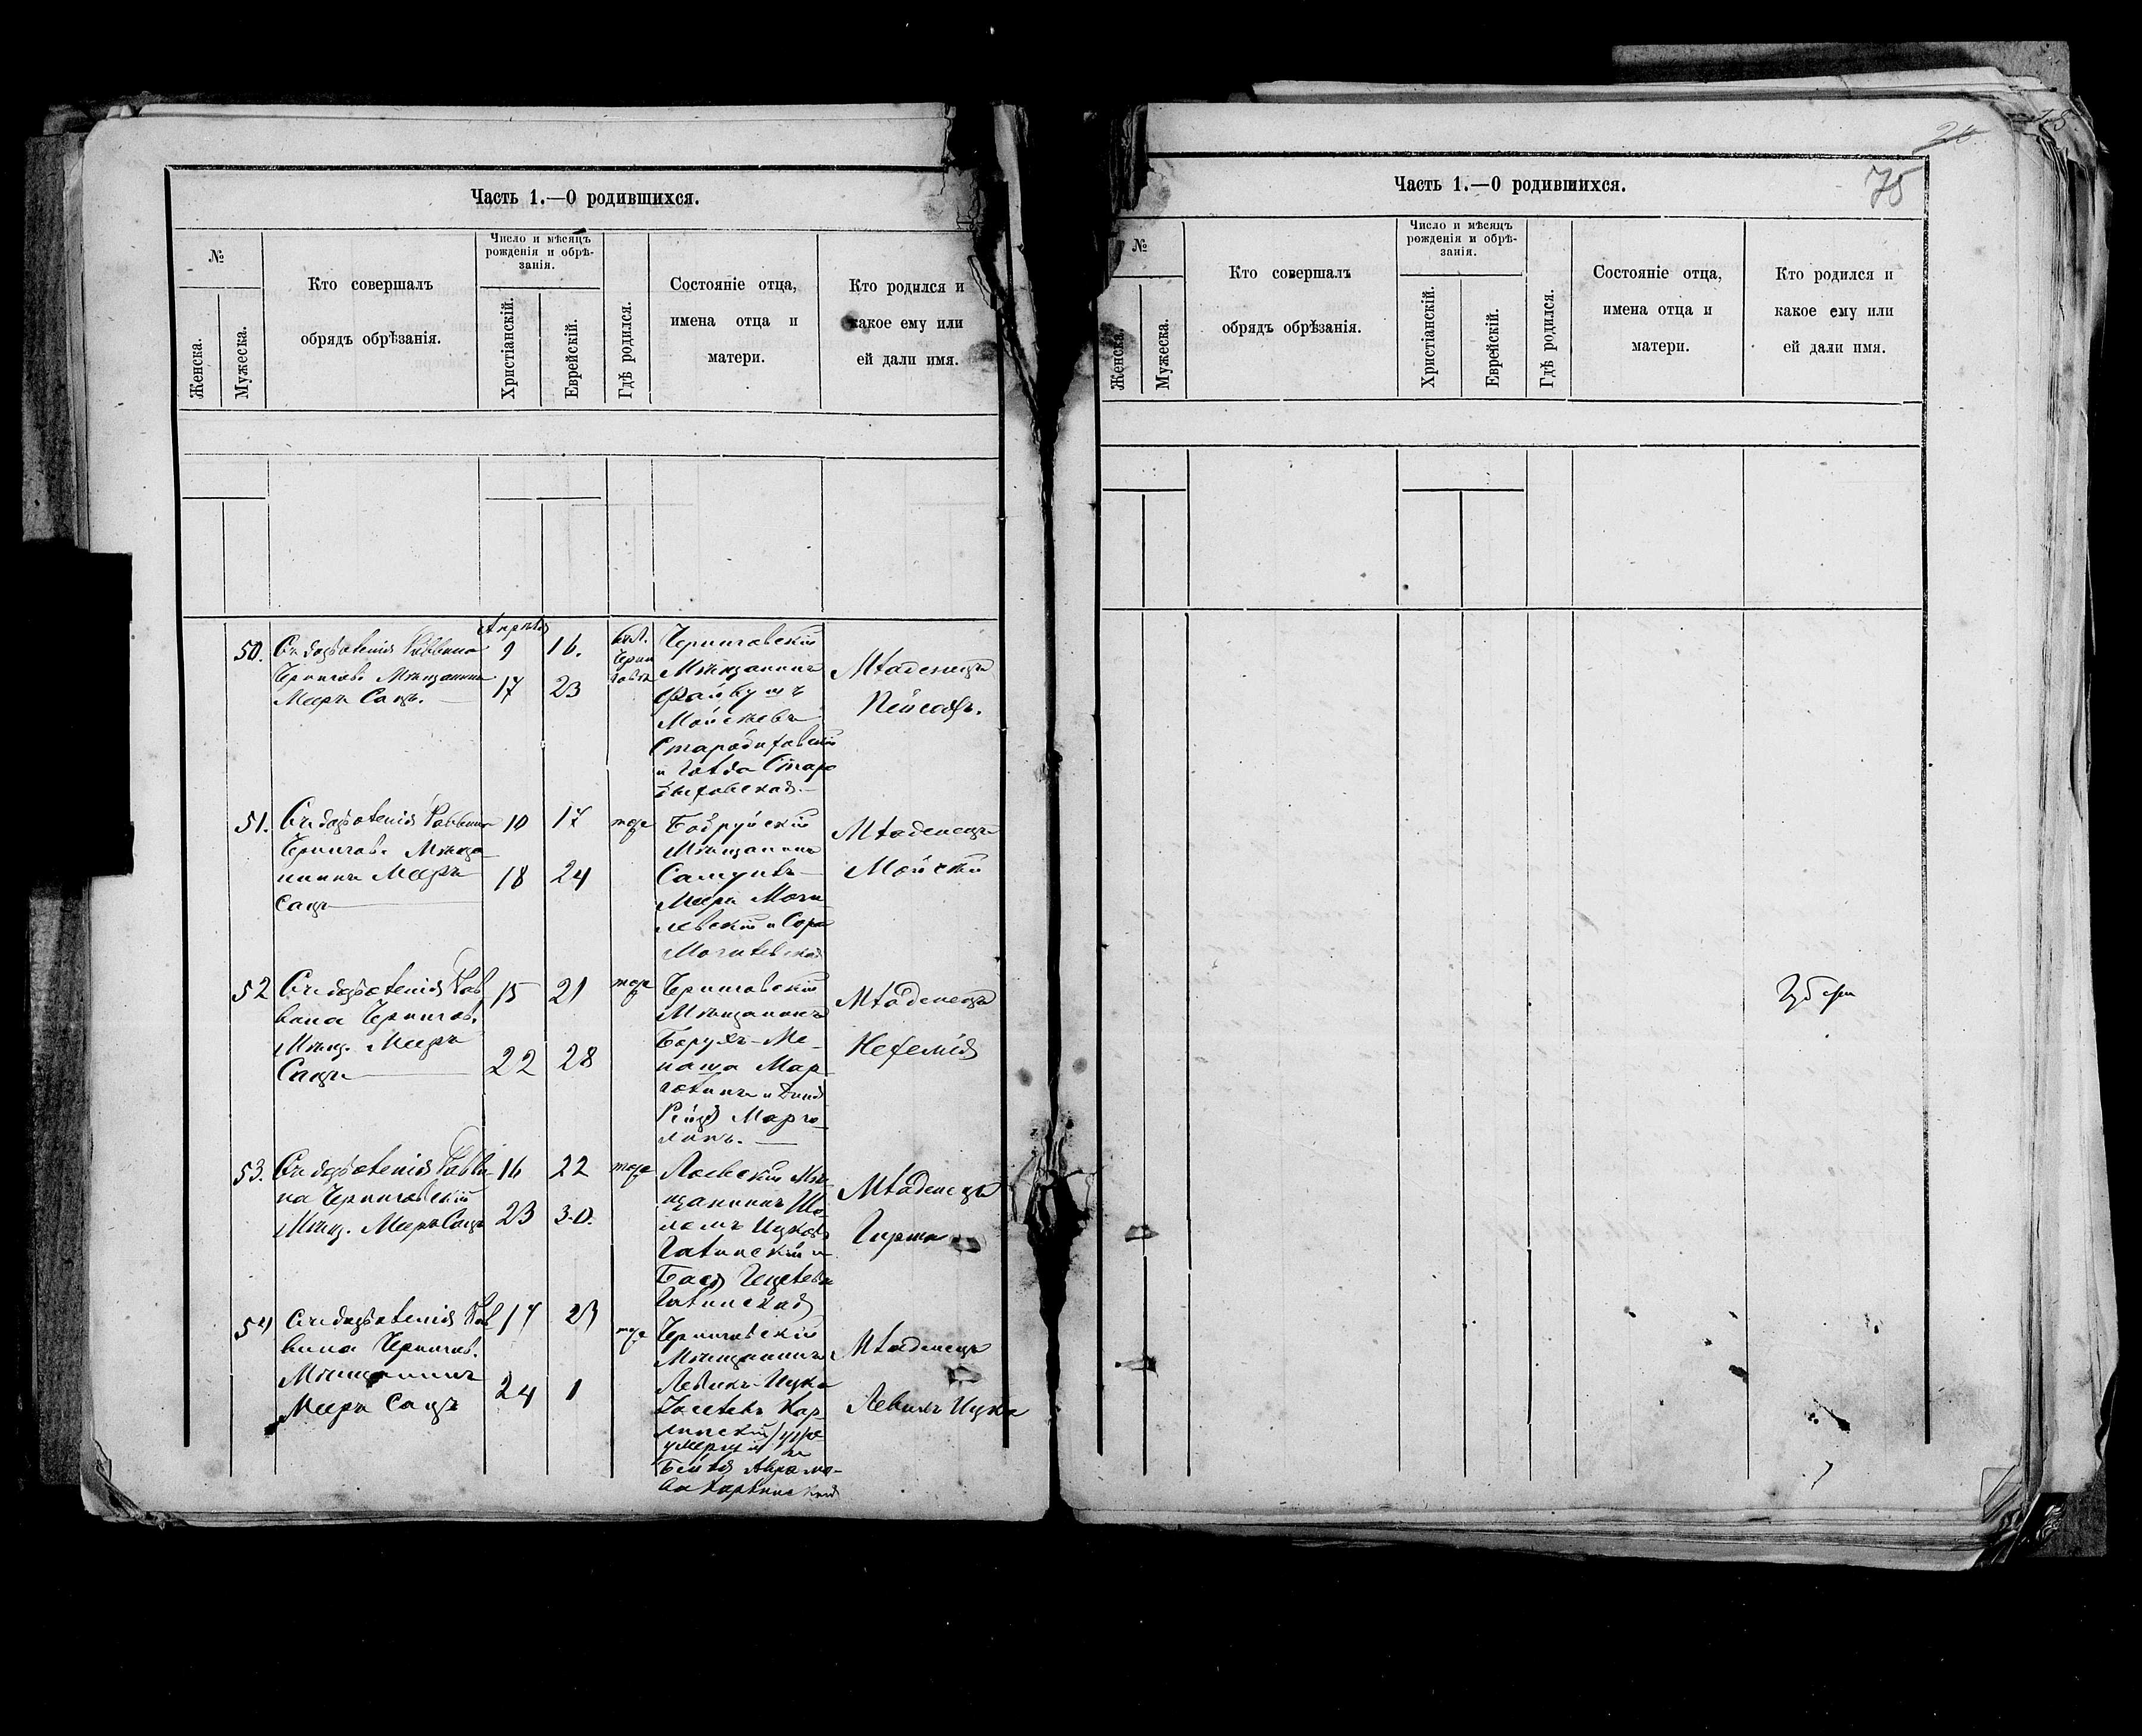 Часть 1.—О родившихся.
№
Женска.
Мужеска.
Кто совершалъ
обрядъ обрѣзанія.
Число и мѣсяцъ
рожденія и обрѣ-
занія.
Христіанскій.
Еврейскій.
Гдѣ родился.
Состояніе отца,
имена отца и
матери.
Кто родился и
какое ему или
ей дали имя.
50.
Съ дозволенія Раввина
Чернигов. Мѣщанинъ
Мееръ Сацъ.
Апрѣля
9 16.
17 23
Черниговскій
Мѣщанинъ
Файвушъ
Старобиховскій
и Голда Старо
биховская.
Младенецъ
Пейсахъ.
51.
Съ дозволенія Раввина
Чернигов. Мѣща
нинъ Мееръ
Сацъ
10 17
18 24
тоже
Бобруйскій
Мѣщанинъ
Мееръ Моги
левскій и Сора
Могилевская
Младенецъ
Мойсей
52
Съ дозволенія Рав
вина Чернигов.
Мѣщ. Мееръ
Сацъ
15 21
22 28
тоже
Черниговскій
Мѣщанинъ
Борухъ-Ме-
наша Мар
голинъ и
Марго-
линъ.
Младенецъ
Нехемія
53.
Съ дозволенія Равви
на Черниговскій
Мѣщ. Мееръ Сацъ
16 22
23 30.
тоже
Лоевскій Мѣ
щанинъ Шо
ломъ Ицковъ
Галинскій и
Бася
Галинская
Младенецъ
Гирша
54
Съ дозволенія Рав
вина Чернигов.
Мѣщанинъ
Мееръ Сацъ
17 23
24 1
тоже
Черниговскій
Мѣщанинъ
Левикъ-Ицка
Кар
линскій /уже
умершій/ и
Бейля Авраамо-
ва Карлинская
Младенецъ
Левикъ Ицка
75
Часть 1.—О родившихся.
№
Женска.
Мужеска.
Кто совершалъ
обрядъ обрѣзанія.
Число и мѣсяцъ
рожденія и обрѣ-
занія.
Христіанскій.
Еврейскій.
Гдѣ родился.
Состояніе отца,
имена отца и
матери.
Кто родился и
какое ему или
ей дали имя.